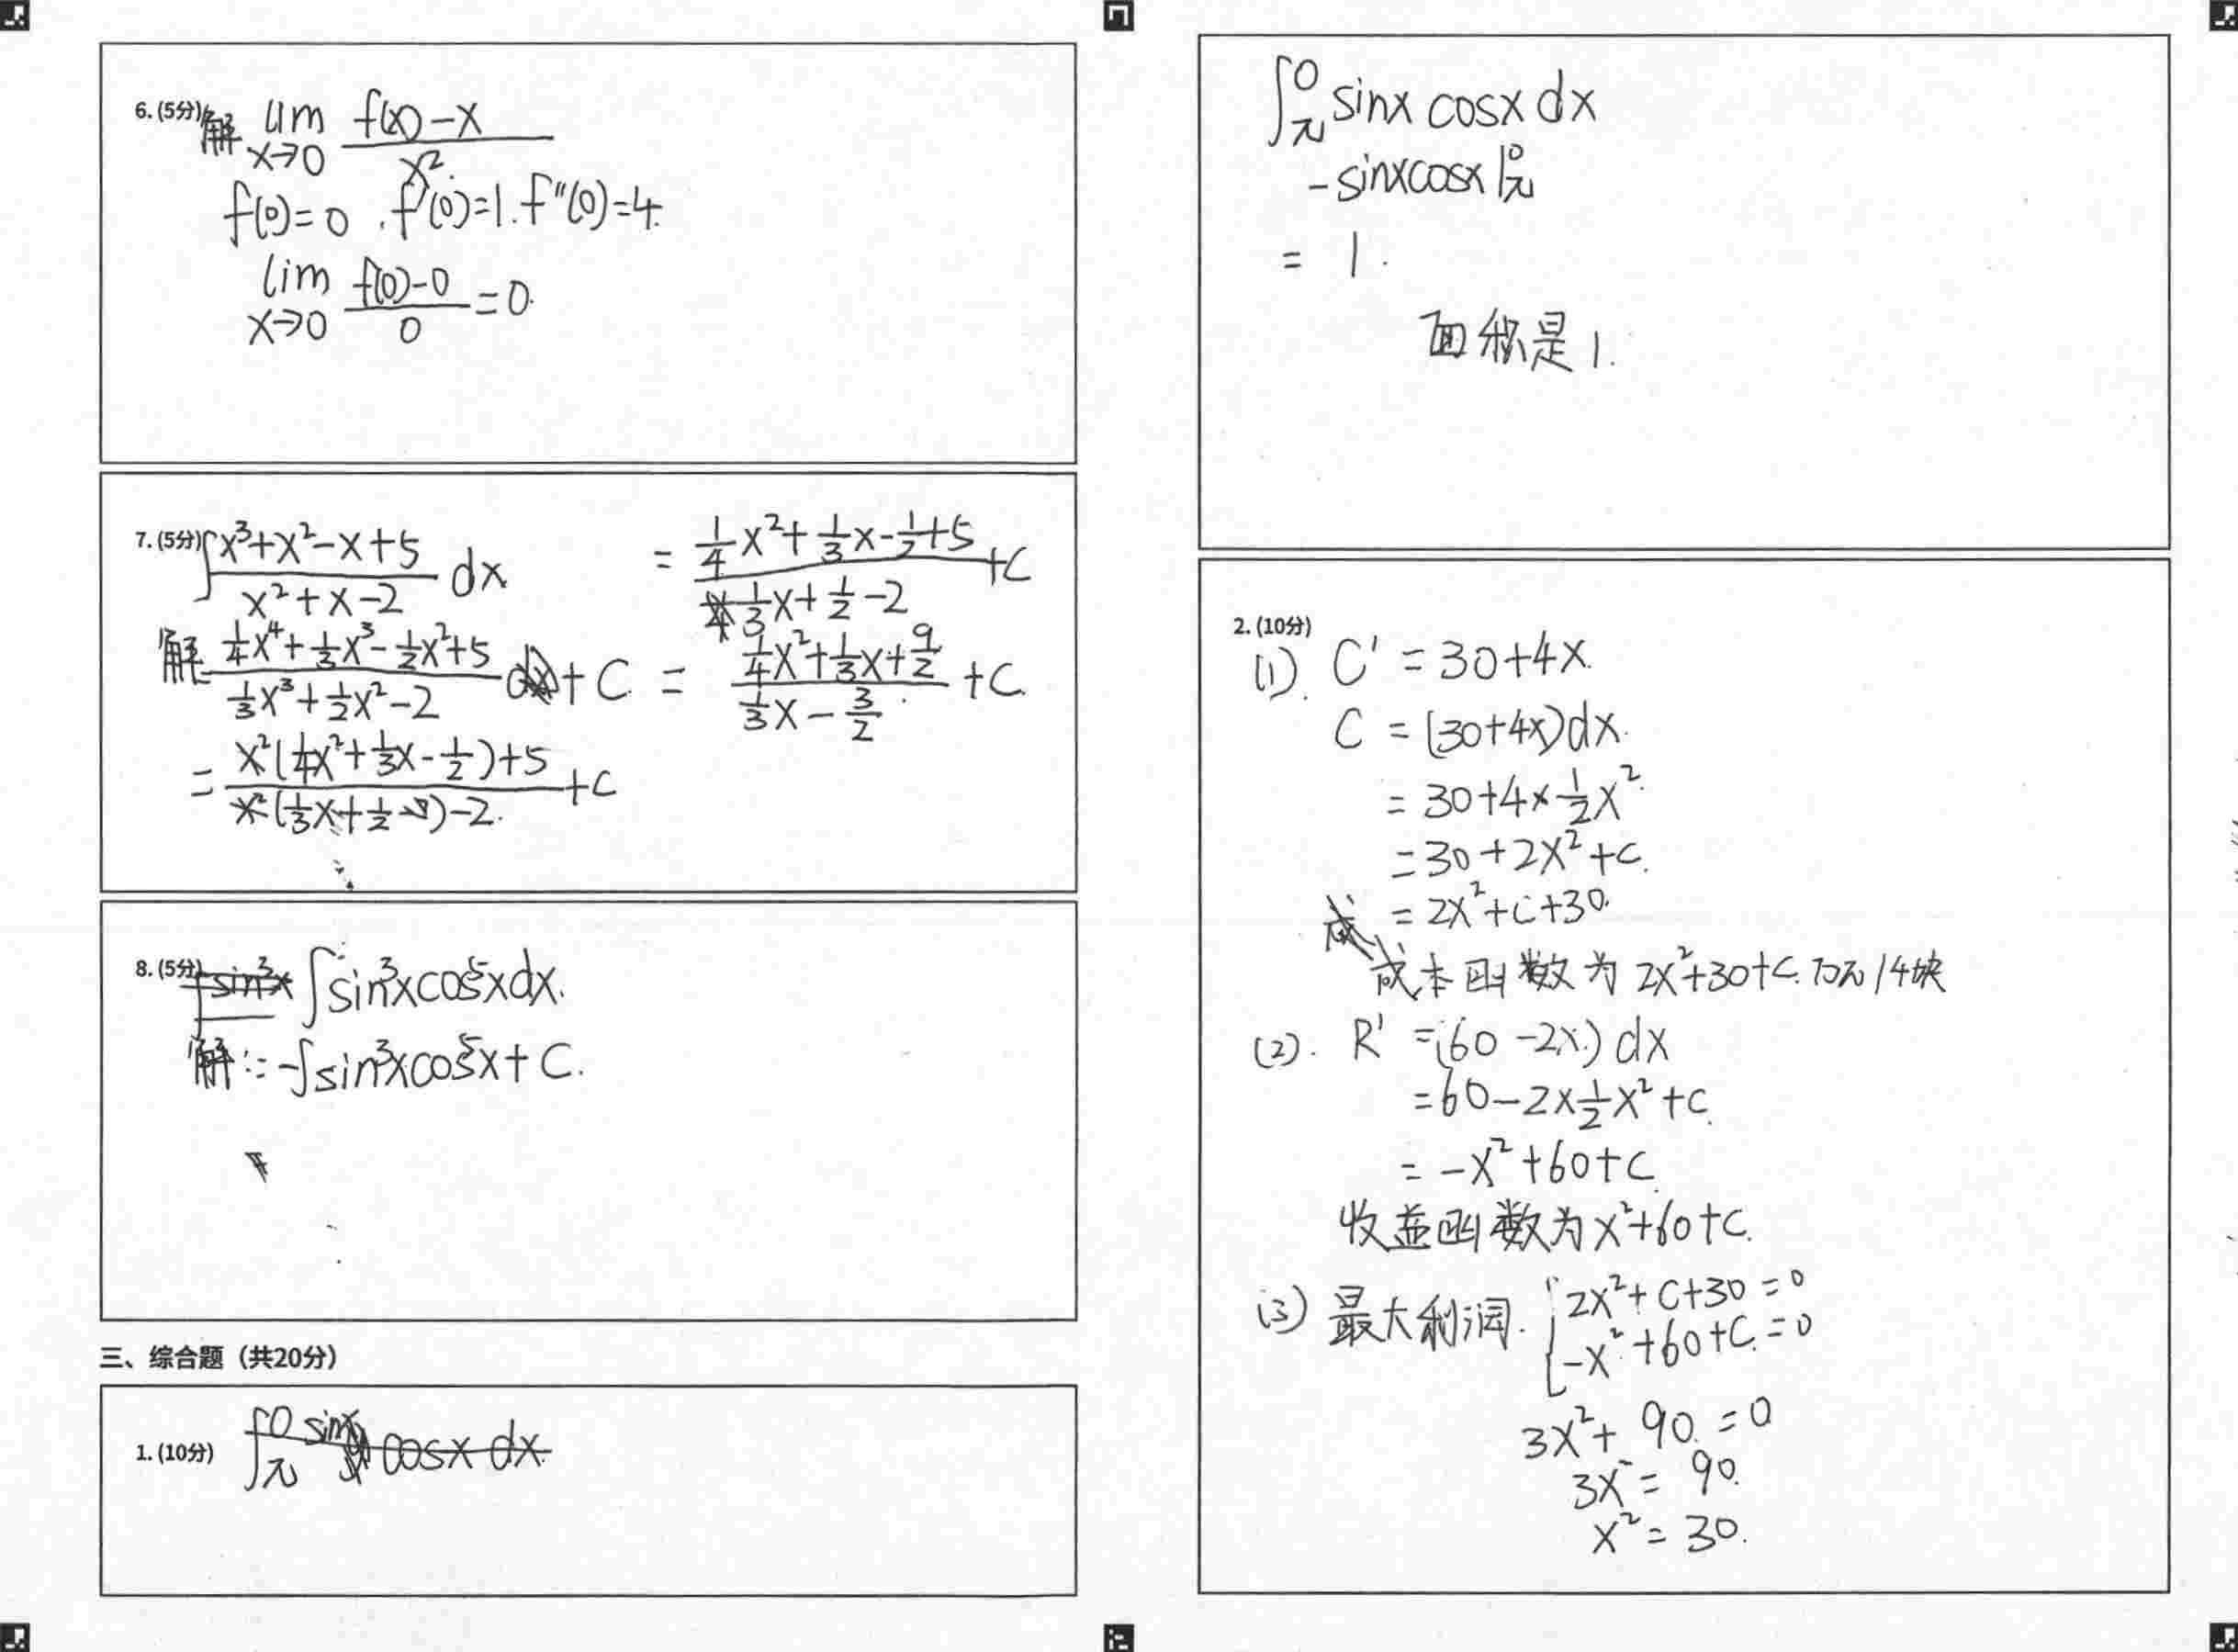 6. (5分) 解 lim x→0 (f(x)-x)/x².
f(0)=0 . f'(0)=1. f''(0)=4.
lim x→0 (f(0)-0)/0 = 0.
7. (5分) ∫ (x³+x²-x+5)/(x²+x-2) dx
解 (1/4x⁴+1/3x³-1/2x²+5)/(1/3x³+1/2x²-2) + C
= (x²(1/4x²+1/3x-1/2)+5)/(x²(1/3x+1/2)-2) + C
= (1/4x²+1/3x-1/2+5)/(1/3x+1/2-2) + C
= (1/4x²+1/3x+9/2)/(1/3x-3/2) + C.
8. (5分) ∫sin³x ∫sin³xcos⁵xdx.
解:=-∫sin³xcos⁵x+C.
三、综合题（共20分）
1. (10分) ∫π⁰ sinx cosx dx.
∫π⁰ sinx cosx dx
-sinxcosx|π⁰
= 1.
面积是1.
2. (10分)
(1). C' = 30+4x.
C = (30+4x)dx.
= 30+4×1/2x².
=30+2x²+c.
= 2x²+c+30.
成本函数为 2x²+30+c. 万元/4块
(2). R' =(60-2x) dx
=60-2×1/2x²+c.
= -x²+60+c.
收益函数为x²+60+c.
(3) 最大利润. { 2x²+c+30=0
-x²+60+c.=0
3x²+ 90.=0
3x²= 90.
x²= 30.